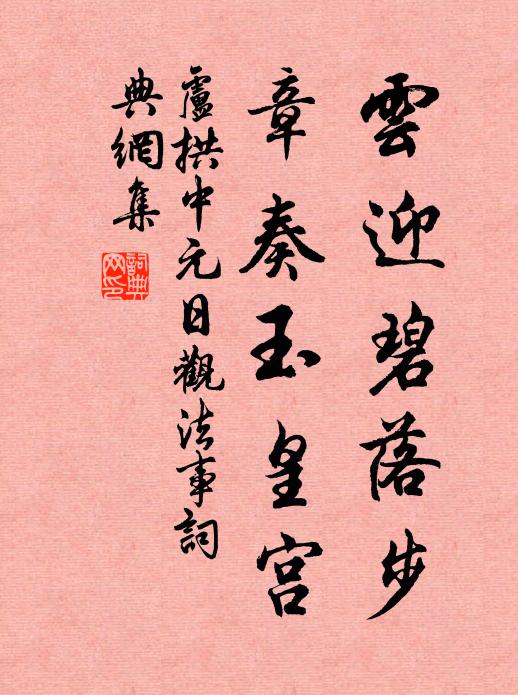 雲迎碧落步
章奏玉皇宮
盧拱中元日觀法事詞
典網集
詞典網印